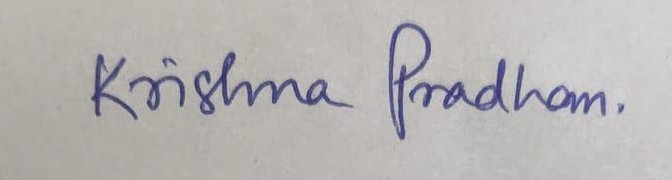 Krishna Pradhan.